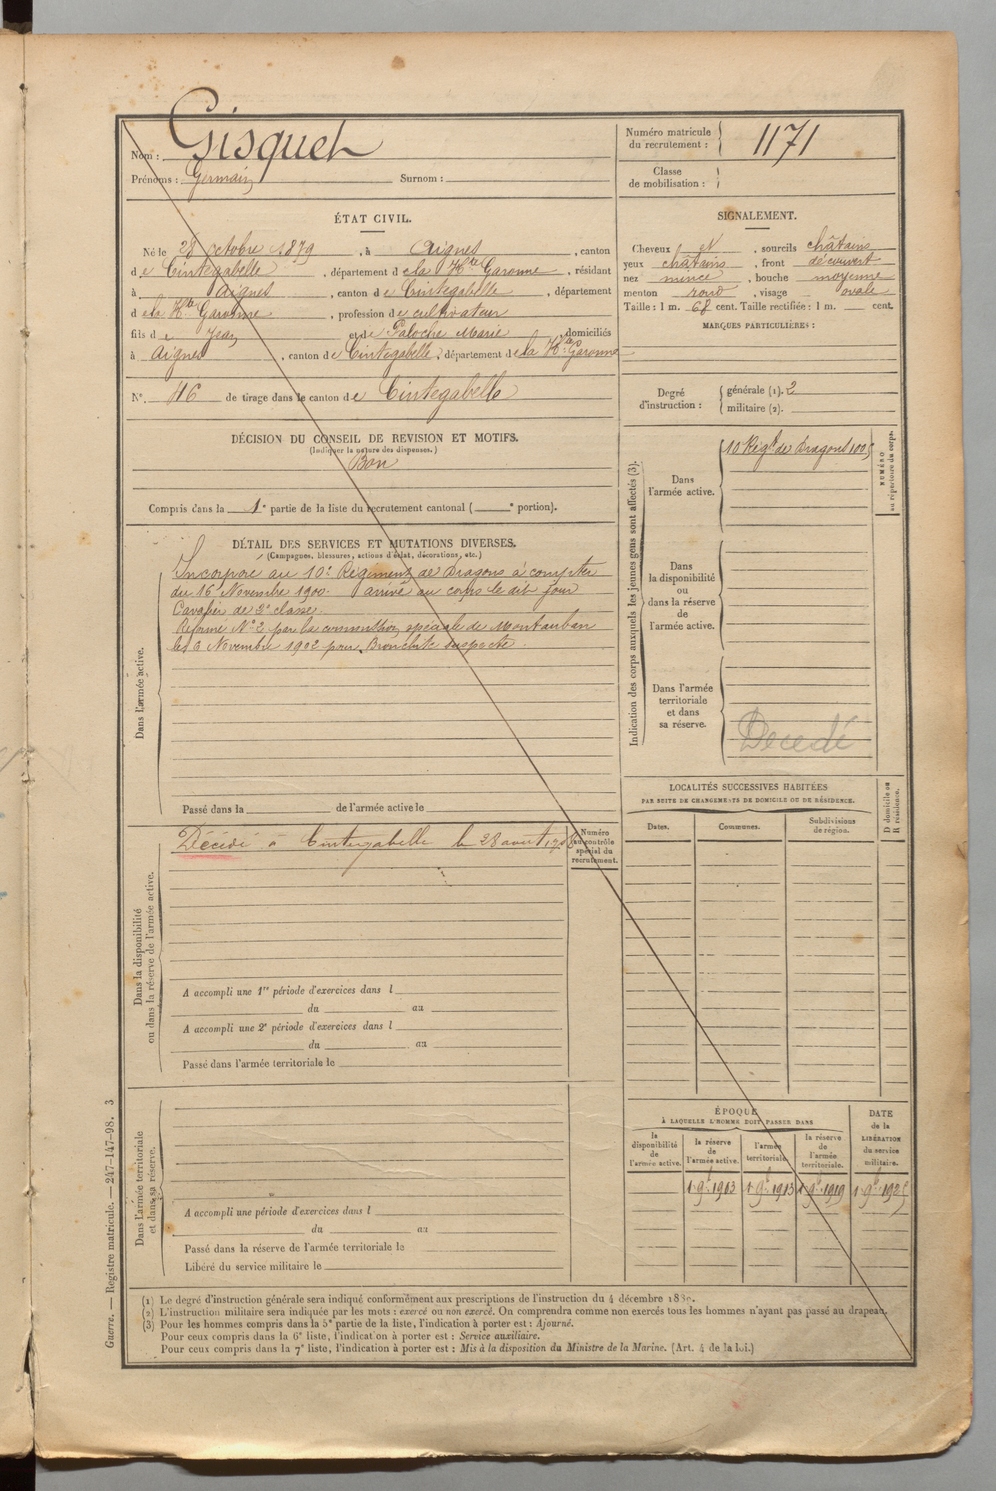 Nom : Gisquet
Prénoms : Germain Surnom :
Numéro matricule du recrutement : 1171
Classe de mobilisation :
ÉTAT CIVIL.
Né le 28 octobre 1879, à Aignes, canton
de Cintegabelle, département de la Hte Garonne, résidant
à Aignes, canton de Cintegabelle, département
de la Hte Garonne, profession de cultivateur
fils de Jean et de Paloche Marie, domiciliés
à Aignes, canton de Cintegabelle, département de la Hte Garonne
N°. 46 de tirage dans le canton de Cintegabelle
DÉCISION DU CONSEIL DE REVISION ET MOTIFS.
(Indiquer la nature des dispenses.)
Bon
Compris dans la 1e partie de la liste du recrutement cantonal ( e portion).
SIGNALEMENT.
Cheveux et, sourcils châtains
yeux châtains, front découvert
nez mince, bouche moyenne
menton rond, visage ovale
Taille : 1 m. 68 cent. Taille rectifiée : 1 m. cent.
MARQUES PARTICULIÈRES :
Degré d'instruction : générale (1). 2
militaire (2).
DÉTAIL DES SERVICES ET MUTATIONS DIVERSES.
(Campagnes, blessures, actions d'éclat, décorations, etc.)
Dans l'armée active.
Incorporé au 10e Régiment de Dragons à compter
du 16 Novembre 1900. arrivé au corps le dit jour
Cavalier de 2e classe.
Réformé N° 2 par la commission spéciale de Montauban
le 3 Novembre 1902 pour Bronchite suspecte.
Passé dans la de l'armée active le
Indication des corps auxquels les jeunes gens sont affectés (3).
Dans l'armée active.
10 Régt de Dragons
NUMÉRO au répertoire du corps.
Dans la disponibilité ou dans la réserve de l'armée active.
Dans l'armée territoriale et dans sa réserve.
Décédé
Dans la disponibilité ou dans la réserve de l'armée active.
Décédé à Cintegabelle le 28 août
Numéro au contrôle spécial du recrutement.
A accompli une 1re période d'exercices dans l
du au
A accompli une 2e période d'exercices dans l
du au
Passé dans l'armée territoriale le
LOCALITÉS SUCCESSIVES HABITÉES
PAR SUITE DE CHANGEMENTS DE DOMICILE OU DE RÉSIDENCE.
Dates. Communes. Subdivisions de région. D domicile ou R résidence.
Dans l'armée territoriale et dans sa réserve.
A accompli une période d'exercices dans l
du au
Passé dans la réserve de l'armée territoriale le
Libéré du service militaire le
ÉPOQUE
À LAQUELLE L'HOMME DOIT PASSER DANS
la disponibilité de l'armée active.
la réserve de l'armée active.
l'armée territoriale.
la réserve de l'armée territoriale.
DATE de la LIBÉRATION du service militaire.
1 9b. 1903 1 9b. 1913 1 9b. 1919 1 9b. 1925
Guerre. — Registre matricule. — 247-147-98. 3
(1) Le degré d'instruction générale sera indiqué conformément aux prescriptions de l'instruction du 4 décembre
(2) L'instruction militaire sera indiquée par les mots : exercé ou non exercé. On comprendra comme non exercés tous les hommes n'ayant pas passé au drapeau.
(3) Pour les hommes compris dans la 5e partie de la liste, l'indication à porter est : Ajourné.
Pour ceux compris dans la 6e liste, l'indication à porter est : Service auxiliaire.
Pour ceux compris dans la 7e liste, l'indication à porter est : Mis à la disposition du Ministre de la Marine. (Art. 4 de la loi.)